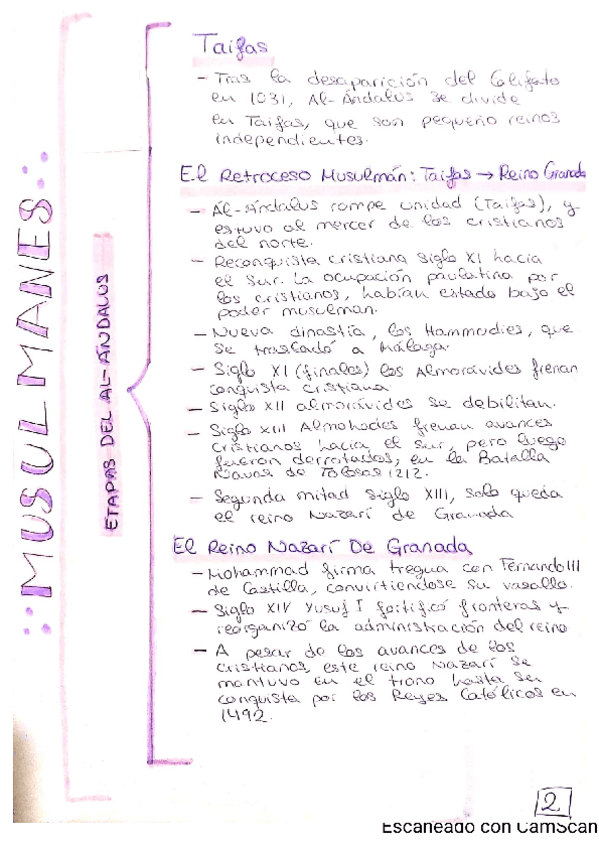 MUSULMANES
ETAPAS DEL AL-ÁNDALUS
Taifas
- Tras la desaparición del Califato
en 1031, Al-Ándalus se divide
en Taifas, que son pequeño reinos
independientes.
El Retroceso Musulmán: Taifas → Reino Granada
- Al-Ándalus rompe unidad (Taifas), y
estuvo al mercer de los cristianos
del norte.
- Reconquista cristiana siglo XI hacia
el sur. La ocupación paulatina por
los cristianos, habían estado bajo el
poder musulman.
- Nueva dinastía, los Hammudies, que
se trasladó a málaga.
- Siglo XI (finales) los Almorávides frenan
conquista cristiana
- Siglo XII almorávides se debilitan.
- Siglo XIII Almohodes frenan avances
cristianos hacia el sur, pero luego
fueron derrotados, en la Batalla
Navas de Tolosas 1212.
- Segunda mitad siglo XIII, solo queda
el reino Nazarí de Granada
El Reino Nazarí De Granada
- Mohammad firma tregua con Fernando III
de Castilla, convirtiendose su vasallo.
- Siglo XIV Yusuf I fortificó fronteras y
reorganizó la administración del reino
- A pesar de los avances de los
cristianos, este reino Nazarí se
mantuvo en el trono hasta su
conquista por los Reyes Católicos en
1492.
2
Escaneado con CamScan